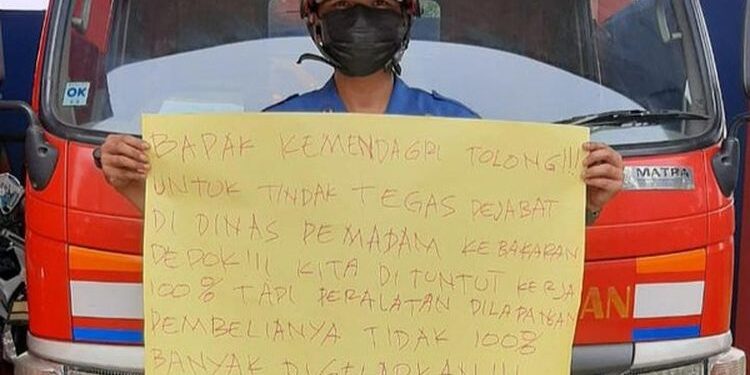 OK
BAPAK KEMENDAGRI TOLONG!!!
UNTUK TINDAK TEGAS PEJABAT
DI DINAS PEMADAM KEBAKARAN
DEPOK!!! KITA DITUNTUT KERJA
100% TAPI PERALATAN DILAPANGAN
PEMBELIANYA TIDAK 100%
BANYAK DIGELAPKAN!!!
MATRA